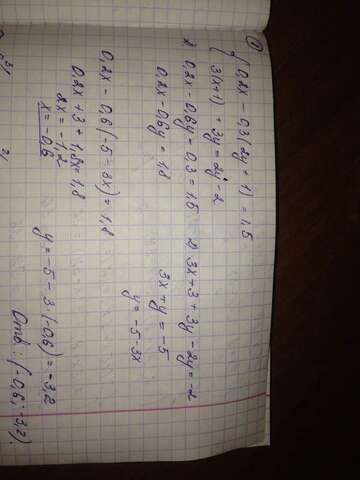 1) { 0,2x - 0,3(2y + 1) = 1,5
3(x+1) + 3y = 2y - 2
0,2x - 0,6y - 0,3 = 1,5
0,2x - 0,6y = 1,8
2. 3x + 3 + 3y - 2y = -2
3x + y = -5
y = -5 - 3x
0,2x - 0,6(-5 - 3x) = 1,8
0,2x + 3 + 1,8x = 1,8
2x = -1,2
x = -0,6
y = -5 - 3·(-0,6) = -3,2
Отв: (-0,6; -3,2).